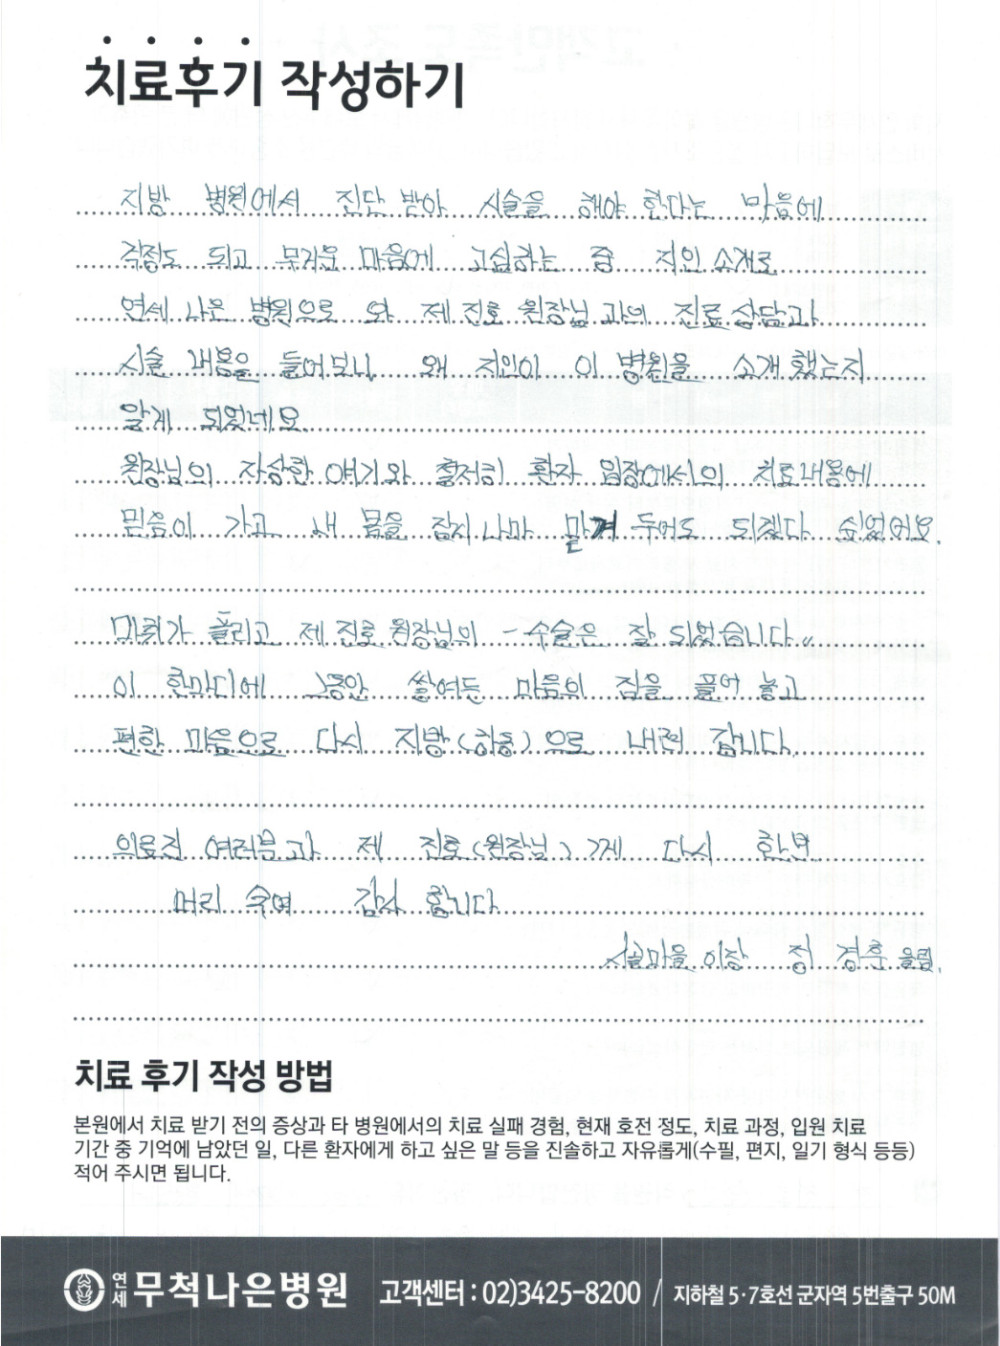 치료후기 작성하기
지방 병원에서 진단 받아 시술을 해야 한다는 마음에
걱정도 되고 무거운 마음에 고심하는 중 지인 소개로
연세 나은 병원으로 와 제진호 원장님과의 진료상담과
시술 내용을 들어보니 왜 지인이 이 병원을 소개 했는지
알게 되었네요
원장님의 자상한 얘기와 철저히 환자 입장에서의 치료내용에
믿음이 가고 내 몸을 잠시나마 맡겨 두어도 되겠다 싶었어요.
마취가 풀리고 제진호 원장님의 - 수술은 잘 되었습니다."
이 한마디에 그동안 쌓여든 마음의 짐을 풀어 놓고
편한 마음으로 다시 지방(하동)으로 내려 갑니다.
의료진 여러분과 제 진호(원장님)께 다시 한번
머리 숙여 감사 합니다
시골마을 이장 정 경훈 올림.
치료 후기 작성 방법
본원에서 치료 받기 전의 증상과 타 병원에서의 치료 실패 경험, 현재 호전 정도, 치료 과정, 입원 치료
기간 중 기억에 남았던 일, 다른 환자에게 하고 싶은 말 등을 진솔하고 자유롭게(수필, 편지, 일기 형식 등등)
적어 주시면 됩니다.
연세 무척나은병원 고객센터 : 02)3425-8200 / 지하철 5·7호선 군자역 5번출구 50M